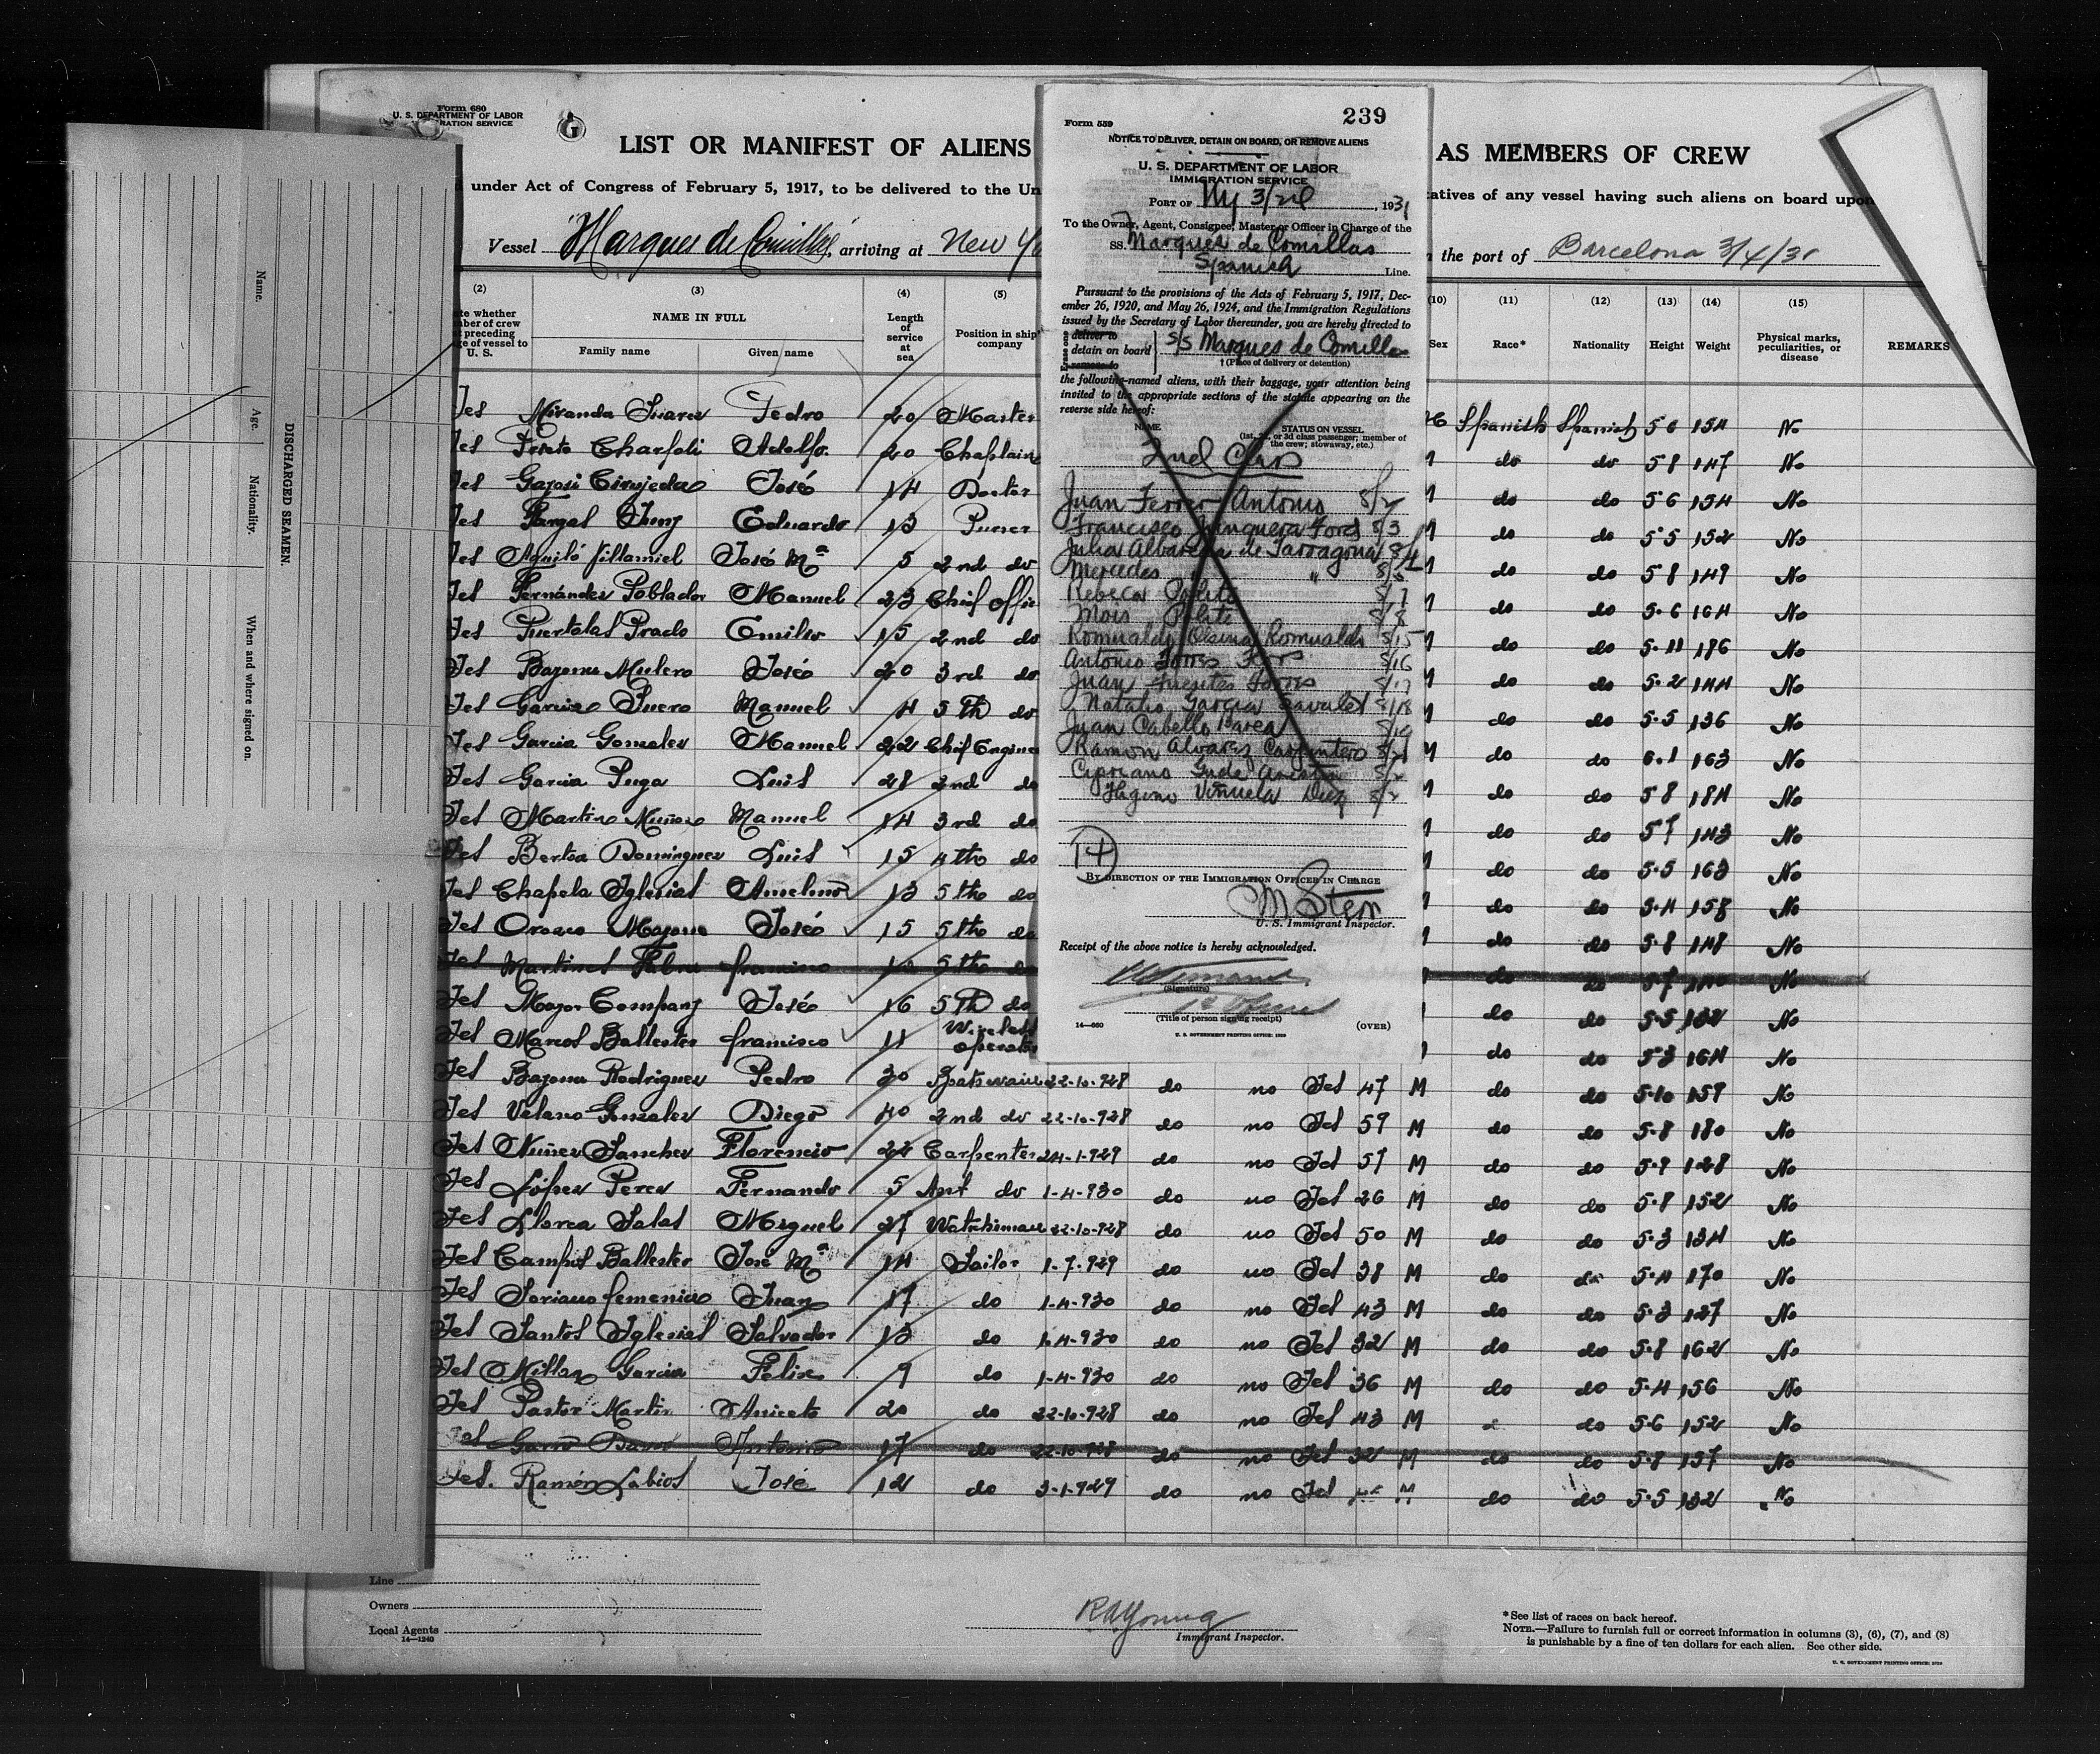 Form 680
U. S. DEPARTMENT OF LABOR
RATION SERVICE
G
LIST OR MANIFEST OF ALIENS
AS MEMBERS OF CREW
under Act of Congress of February 5, 1917, to be delivered to the Un
tatives of any vessel having such aliens on board upon
Vessel "Marques de Comillas", arriving at New Yo
the port of Barcelona 3/4/31
(2) (3) (4) (5)
(10) (11) (12) (13) (14) (15)
te whether
mber of crew
t preceding
ge of vessel to
U. S.
NAME IN FULL
Family name Given name
Length
of
service
at
sea
Position in ship's
company
Sex Race* Nationality Height Weight
Physical marks,
peculiarities, or
disease
REMARKS
Yes Miranda Suarez Pedro 20 Master Spanish Spanish 5 6 154 No
Yes Prieto Charfoli Adolfo 20 Chaplain M do do 5 8 147 No
Yes José 14 Doctor M do do 5 6 154 No
Yes Eduardo 13 Purser M do do 5 5 152 No
Yes Aguiló Villamiel José Mª 5 2nd do M do do 5 8 149 No
Yes Fernández Poblador Manuel 23 Chief offic M do do 5.6 164 No
Yes Puertolas Prado Emilio 15 2nd do M do do 5.11 186 No
Yes Bazona Mulero José 20 3rd do M do do 5.2 144 No
Yes Garcia Suero Manuel 4 5th do M do do 5.5 136 No
Yes Garcia Gonzalez Manuel 22 Chief Engine M do do 6.1 163 No
Yes Garcia Puga Luis 28 2nd do M do do 5 8 184 No
Yes Martinez Muñoz Manuel 14 3rd do M do do 5 7 143 No
Yes Bertoa Dominguez Luis 15 4th do do do 5.5 163 No
Yes Chapela Iglesias Anselmo 13 5th do do do 5.4 158 No
Yes Orozco José 15 5th do do do 5.8 148 No
Yes Martinez francisco 10 5th do do do 5.7 140 No
Yes Mayor Company José 16 5th do do do 5.5 132 No
Yes Marcos Ballester francisco 11 Wireless
operator do do 5 3 164 No
Yes Bazona Rodriguez Pedro 30 Boatswain 22-10-928 do no Yes 47 M do do 5.10 159 No
Yes Velano Gonzalez Diego 40 2nd do 22-10-928 do no Yes 59 M do do 5.8 180 No
Yes Nuñez Sanchez Florencio 22 Carpenter 24-1-929 do no Yes 57 M do do 5.9 128 No
Yes López Perez Fernando 5 Ast do 1-4-930 do no Yes 26 M do do 5.8 152 No
Yes Llorca Salas Miguel 27 Watchman 22-10-928 do no Yes 50 M do do 5.3 134 No
Yes Campos Ballester José Mª 14 Sailor 1-7-929 do no Yes 38 M do do 5.4 170 No
Yes Soriano femenia Juan 17 do 1-4-930 do no Yes 43 M do do 5.3 127 No
Yes Santos Iglesias Salvador 13 do 1-4-930 do no Yes 32 M do do 5.8 162 No
Yes Millan Garcia Felix 9 do 1-4-930 do no Yes 36 M do do 5.4 156 No
Yes Pastor Martin Aniceto 20 do 22-10-928 do no Yes 43 M do 5.6 152 No
Yes Antonio 17 do 22-10-928 do no Yes 32 M do do 5.8 157 No
Yes. Ramón Labios José 12 do 3-1-929 do no Yes M do do 5.5 132 No
Line
Owners
Local Agents
14—1240
RA Young
Immigrant Inspector.
*See list of races on back hereof.
NOTE.—Failure to furnish full or correct information in columns (3), (6), (7), and (8)
is punishable by a fine of ten dollars for each alien. See other side.
U. S. GOVERNMENT PRINTING OFFICE: 1929
239
Form 559
NOTICE TO DELIVER, DETAIN ON BOARD, OR REMOVE ALIENS
U. S. DEPARTMENT OF LABOR
IMMIGRATION SERVICE
PORT OF NY 3/22, 1931
To the Owner, Agent, Consignee, Master or Officer in Charge of the
SS. Marqués de Comillas
Spanish Line.
Pursuant to the provisions of the Acts of February 5, 1917, Dec-
ember 26, 1920, and May 26, 1924, and the Immigration Regulations
issued by the Secretary of Labor thereunder, you are hereby directed to
Erase one
deliver to
detain on board
remove to
S/S Marques de Comillas
† (Place of delivery or detention)
the following-named aliens, with their baggage, your attention being
invited to the appropriate sections of the statute appearing on the
reverse side hereof:
NAME STATUS ON VESSEL
(1st, 2d, or 3d class passenger; member of
the crew; stowaway, etc.)
2nd Class
Juan Ferrer Antonio 8/2
Francisco Junquera Ford 8/3
Julia Albareda de Tarragona 8/4
Mercedes " " 8/5
Rebeca Polite 8/7
Mois Polite 8/8
Romualdo Olsina Romualdo 8/15
Antonio Torres 8/16
Juan Fuentes Torres 8/17
Natalio Garcia 8/18
Juan Cabello Parea 8/19
Ramon Alvarez Carpintero 8/21
Cipriano Gude
Higino Viñuela Diez
14
BY DIRECTION OF THE IMMIGRATION OFFICER IN CHARGE
M Stern
U. S. Immigrant Inspector.
Receipt of the above notice is hereby acknowledged.
(Signature)
(Title of person signing receipt)
14—660
(OVER)
U. S. GOVERNMENT PRINTING OFFICE: 1929
DISCHARGED SEAMEN.
Name. Age. Nationality. When and where signed on.